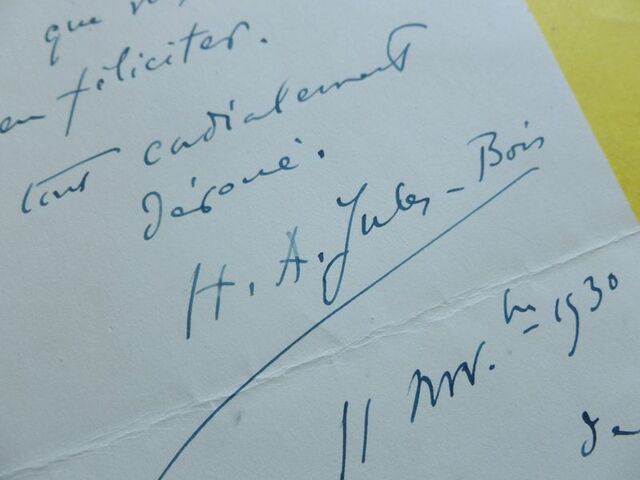 que
en féliciter.
tout cordialement
dévoué.
H. A. Jules-Bois
11 Nov. bre 1930